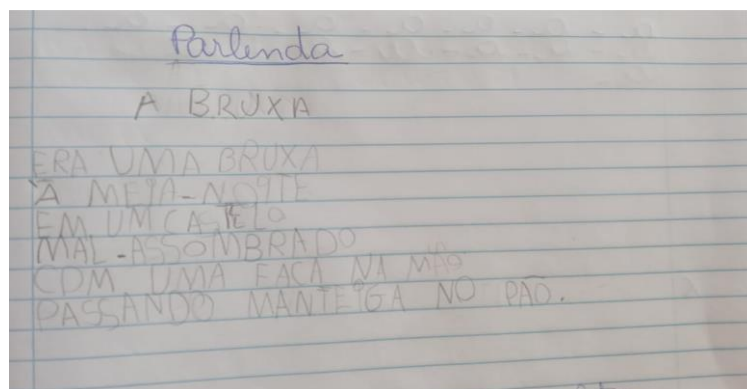 Parlenda
A BRUXA
ERA UMA BRUXA
À MEIA-NOITE
EM UM CASTELO
MAL-ASSOMBRADO
COM UMA FACA NA MÃO
PASSANDO MANTEIGA NO PÃO.